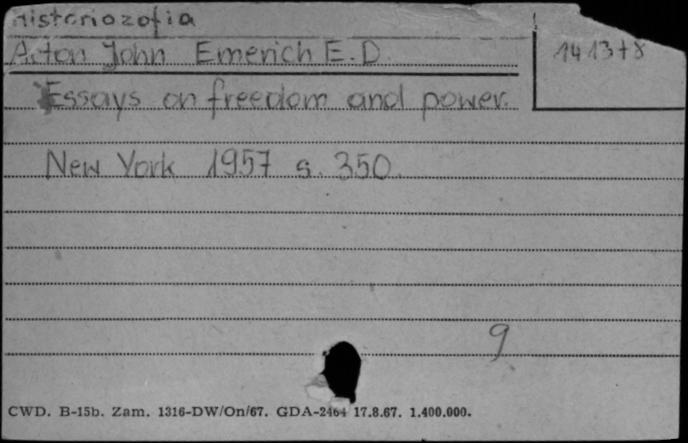 Historiozofia
Acton John Emerich E.D. 141378
Essays on freedom and power.
New York 1957 s. 350.
9
CWD. B-15b. Zam. 1316-DW/On/67. GDA-2464 17.8.67. 1.400.000.